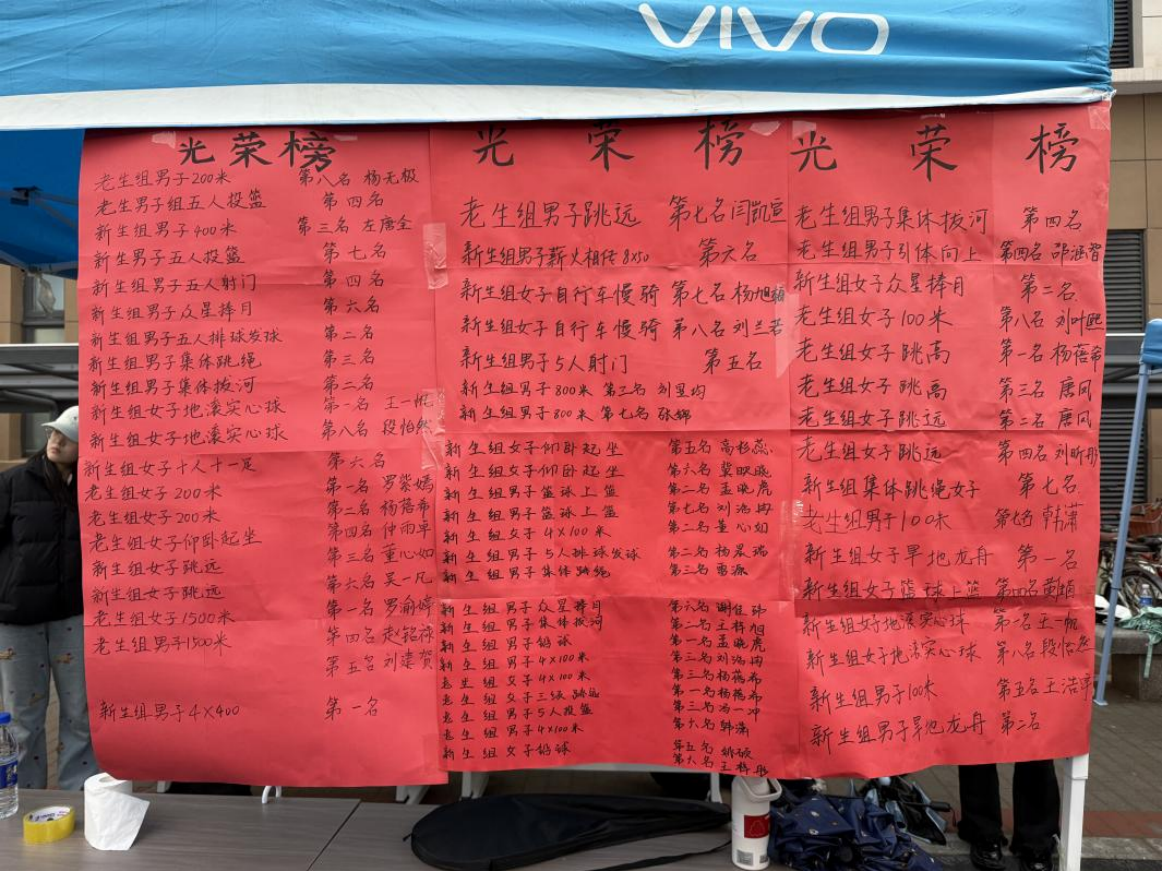 vivo
光荣榜
老生组男子200米 第八名 杨无极
老生男子组五人投篮 第四名
新生组男子400米 第三名 左唐全
新生男子五人投篮 第七名
新生组男子五人射门 第四名
新生组男子众星捧月 第六名
新生组男子五人排球发球 第二名
新生组男子集体跳绳 第三名
新生组男子集体拔河 第二名
新生组女子地滚实心球 第一名 王一帆
新生组女子地滚实心球 第八名 段怡然
新生组女子十人十一足 第六名
老生组女子200米 第一名 罗
老生组女子200米 第二名 杨蓓希
老生组女子仰卧起坐 第四名 仲雨卓
新生组女子跳远 第三名 董心如
新生组女子跳远 第六名 吴一凡
老生组女子1500米 第一名 罗渝婷
老生组男子1500米 第四名 赵铭禄
第五名 刘建贺
新生组男子4×400 第一名
光荣榜
老生组男子跳远 第七名 闫凯宣
新生组男子薪火相传8x50 第六名
新生组女子自行车慢骑 第七名 杨旭
新生组女子自行车慢骑 第八名 刘兰若
新生组男子5人射门 第五名
新生组男子800米 第三名 刘昱均
新生组男子800米 第七名 张
新生组女子仰卧起坐 第五名 高
新生组女子仰卧起坐 第六名 冀晓
新生组男子篮球上篮 第二名 孟晓虎
新生组男子篮球上篮 第七名 刘浩冉
新生组女子4×100米 第二名 董心如
新生组男子5人排球发球 第二名 杨晨瑞
新生组男子集体跳绳 第三名 源
新生组男子众星捧月 第六名 谢佳
新生组男子集体拔河 第二名 王梓旭
新生组男子铅球 第一名 孟晓虎
新生组男子4×100米 第三名 刘浩冉
老生组女子4×100米 第三名 杨蓓希
老生组女子三级跳远 第一名 杨蓓希
老生组男子5人投篮 第三名 冯一冲
老生组男子4×100米 第六名 韩潇
新生组女子铅球 第五名 姚
第六名 王梓彤
光荣榜
老生组男子集体拔河 第四名
老生组男子引体向上 第四名 邵涵智
新生组女子众星捧月 第二名
老生组女子100米 第八名 刘叶熙
老生组女子跳高 第一名 杨蓓希
老生组女子跳高 第三名 唐凤
老生组女子跳远 第二名 唐凤
老生组女子跳远 第四名 刘昕彤
新生组集体跳绳女子 第七名
老生组男子100米 第七名 韩潇
新生组女子旱地龙舟 第一名
新生组女子篮球上篮 第四名
新生组女子地滚实心球 第一名 王一帆
新生组女子地滚实心球 第八名 段怡然
新生组男子100米 第五名 王浩宇
新生组男子旱地龙舟 第二名